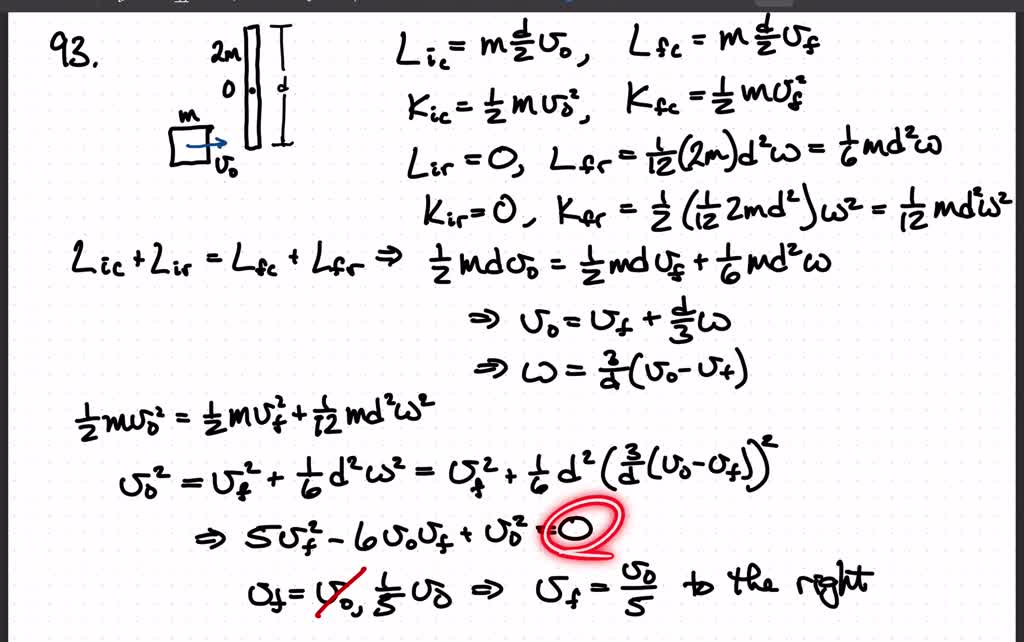 93.
2m
O
d
m
v₀
L_ic = m d/2 v₀, L_fc = m d/2 v_f
K_ic = 1/2 m v₀², K_fc = 1/2 m v_f²
L_ir = 0, L_fr = 1/12 (2m) d² ω = 1/6 m d² ω
K_ir = 0, K_fr = 1/2 (1/12 2m d²) ω² = 1/12 m d² ω²
L_ic + L_ir = L_fc + L_fr ⇒ 1/2 m d v₀ = 1/2 m d v_f + 1/6 m d² ω
⇒ v₀ = v_f + d/3 ω
⇒ ω = 3/d (v₀ - v_f)
1/2 m v₀² = 1/2 m v_f² + 1/12 m d² ω²
v₀² = v_f² + 1/6 d² ω² = v_f² + 1/6 d² (3/d (v₀ - v_f))²
⇒ 5 v_f² - 6 v₀ v_f + v₀² = 0
v_f = v₀, 1/5 v₀ ⇒ v_f = v₀/5 to the right